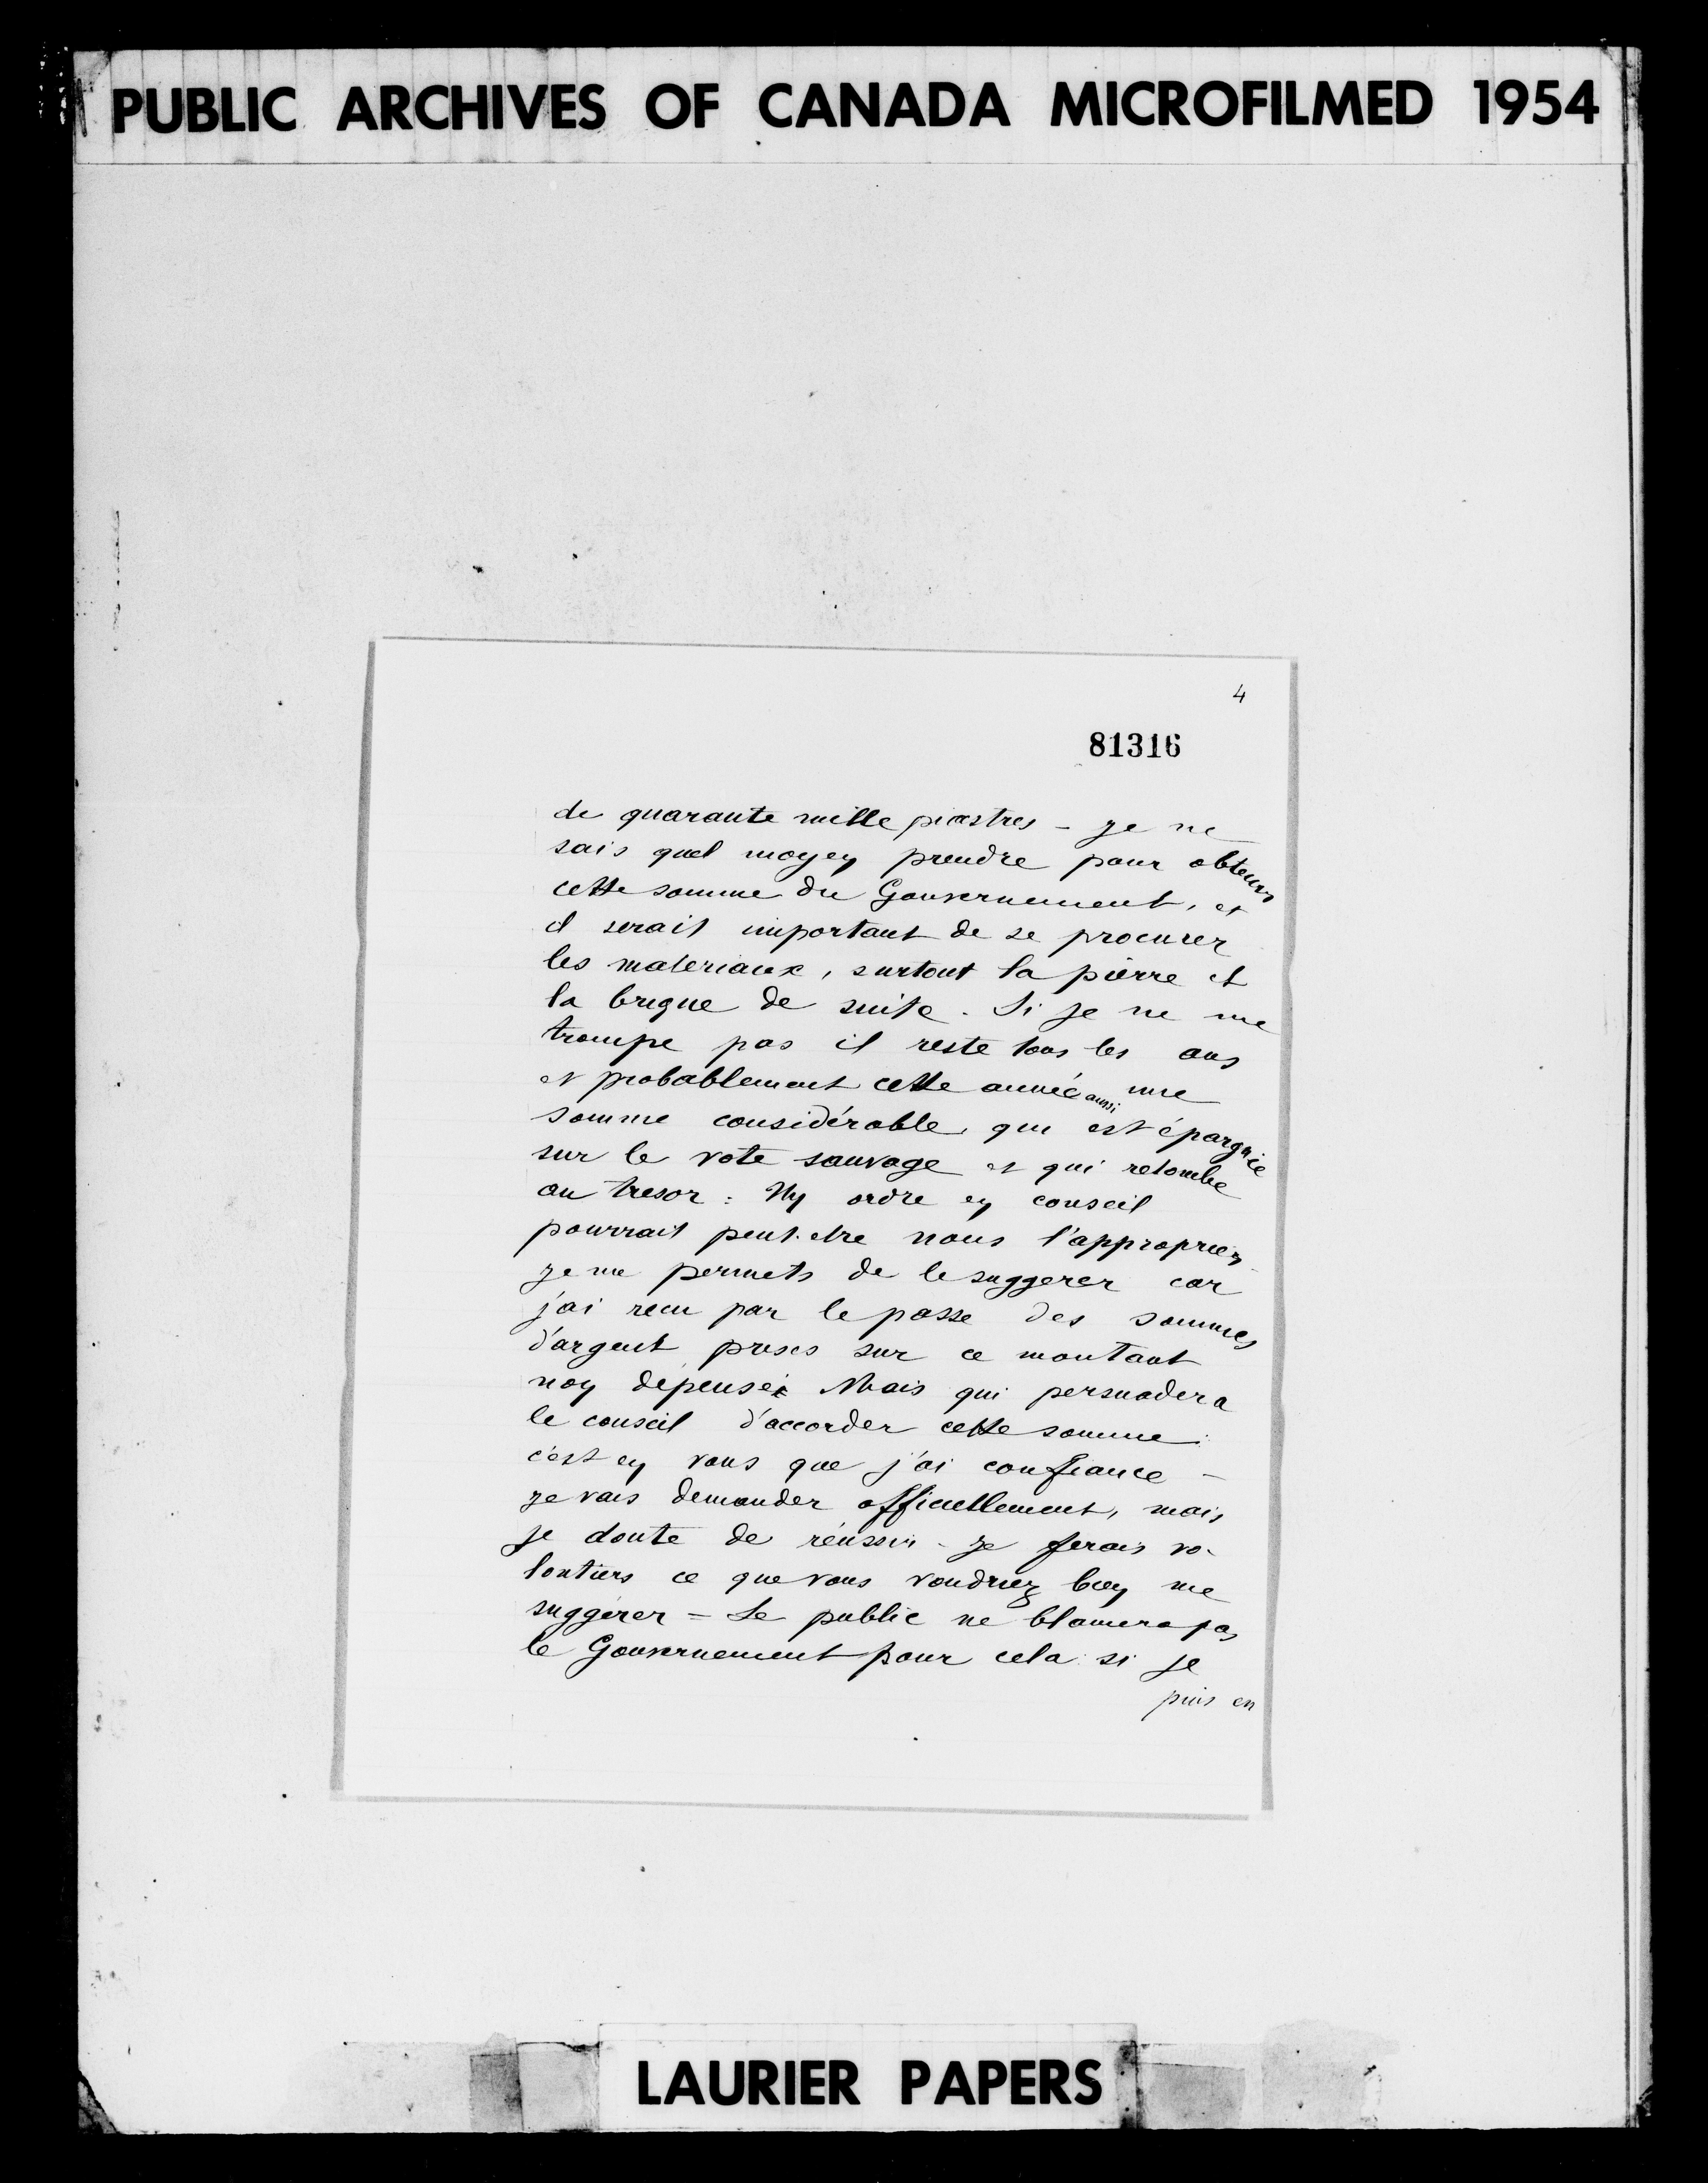 PUBLIC ARCHIVES OF CANADA MICROFILMED 1954
4
81316
de quarante mille piastres - je ne
sais quel moyen prendre pour obtenir
cette somme du Gouvernement, et
il serait important de se procurer
les materiaux, surtout la pierre et
la brique de suite. Si je ne me
trompe pas il reste tous les ans
et probablement cette année aussi une
somme considérable qui est épargnée
sur le vote sauvage et qui retombe
au tresor : Un ordre en conseil
pourrait peut.etre nous l'approprier
je me permets de le suggerer car
j'ai recu par le passe des sommes
d'argent prises sur ce montant
non dépensé. Mais qui persuadera
le conseil d'accorder cette somme :
c'est en vous que j'ai confiance -
je vais demander officiellement, mais
je doute de réussir - je ferais vo-
lontiers ce que vous voudriez bien me
suggérer = Le public ne blamera pas
le Gouvernement pour cela si je
puis en
LAURIER PAPERS